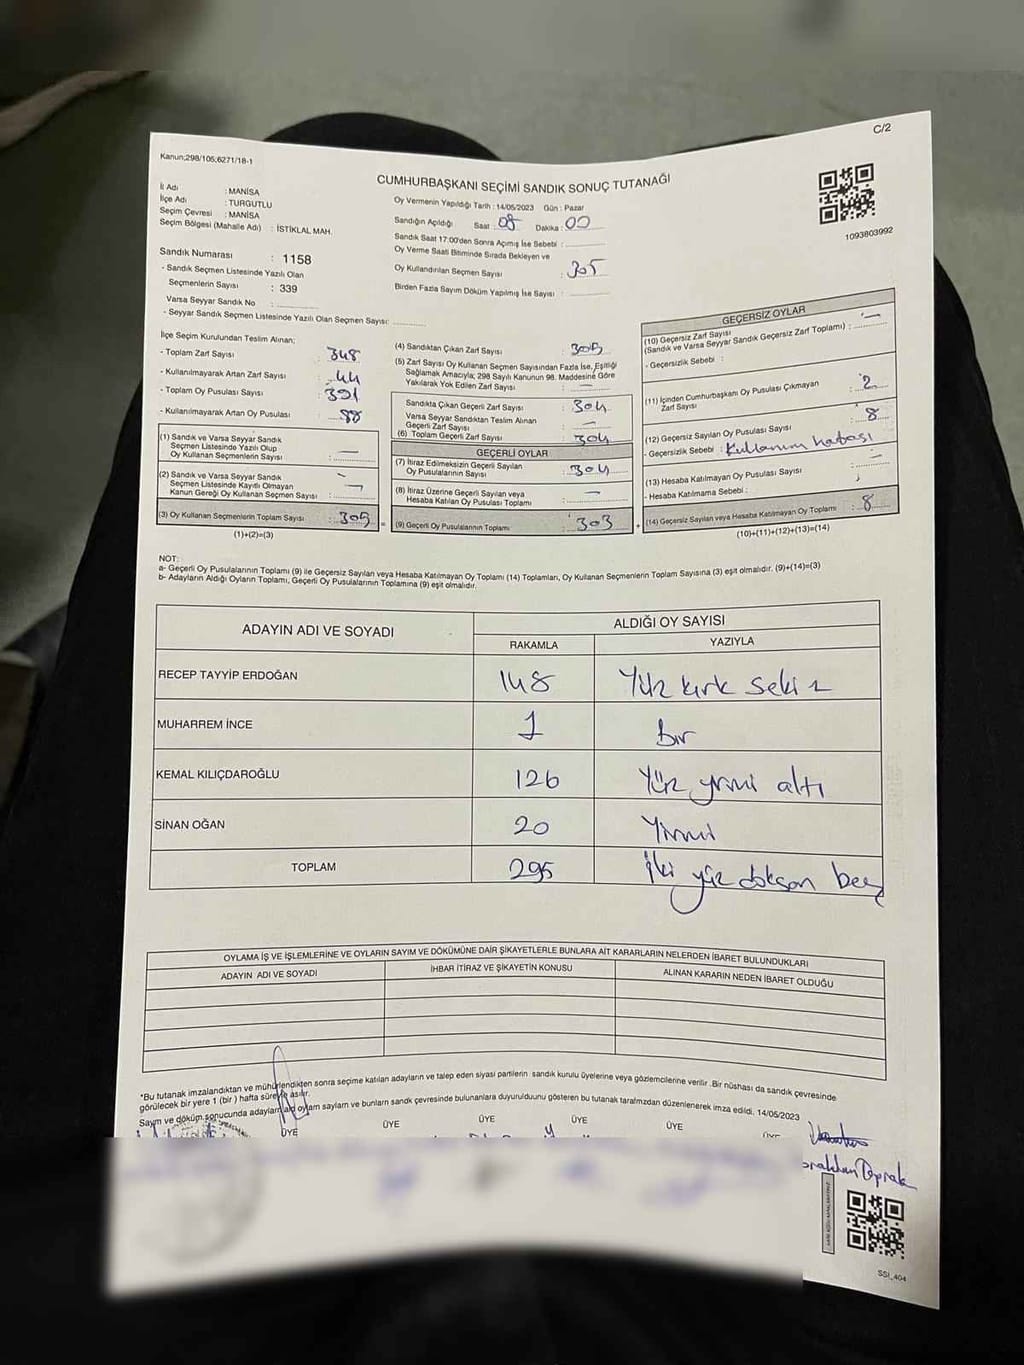 C/2
Kanun;298/105;6271/18-1
CUMHURBAŞKANI SEÇİMİ SANDIK SONUÇ TUTANAĞI
İl Adı : MANİSA
İlçe Adı : TURGUTLU
Seçim Çevresi : MANİSA
Seçim Bölgesi (Mahalle Adı) : İSTİKLAL MAH.
Sandık Numarası : 1158
- Sandık Seçmen Listesinde Yazılı Olan
Seçmenlerin Sayısı : 339
Varsa Seyyar Sandık No :
- Seyyar Sandık Seçmen Listesinde Yazılı Olan Seçmen Sayısı:
Oy Vermenin Yapıldığı Tarih : 14/05/2023 Gün : Pazar
Sandığın Açıldığı Saat : 08 Dakika : 00
Sandık Saat 17:00'den Sonra Açımış İse Sebebi :
Oy Verme Saati Bitiminde Sırada Bekleyen ve
Oy Kullandırılan Seçmen Sayısı : 305
Birden Fazla Sayım Döküm Yapılmış İse Sayısı :
1093803992
İlçe Seçim Kurulundan Teslim Alınan;
- Toplam Zarf Sayısı : 348
- Kullanılmayarak Artan Zarf Sayısı : 44
- Toplam Oy Pusulası Sayısı : 391
- Kullanılmayarak Artan Oy Pusulası : 88
(1) Sandık ve Varsa Seyyar Sandık
Seçmen Listesinde Yazılı Olup
Oy Kullanan Seçmenlerin Sayısı : —
(2) Sandık ve Varsa Seyyar Sandık
Seçmen Listesinde Kayıtlı Olmayan
Kanun Gereği Oy Kullanan Seçmen Sayısı : —
(3) Oy Kullanan Seçmenlerin Toplam Sayısı : 305
(1)+(2)=(3)
(4) Sandıktan Çıkan Zarf Sayısı : 305
(5) Zarf Sayısı Oy Kullanan Seçmen Sayısından Fazla İse, Eşitliği
Sağlamak Amacıyla; 298 Sayılı Kanunun 98. Maddesine Göre
Yakılarak Yok Edilen Zarf Sayısı : —
Sandıkta Çıkan Geçerli Zarf Sayısı : 304
Varsa Seyyar Sandıktan Teslim Alınan
Geçerli Zarf Sayısı : —
(6) Toplam Geçerli Zarf Sayısı : 304
GEÇERLİ OYLAR
(7) İtiraz Edilmeksizin Geçerli Sayılan
Oy Pusulalarının Sayısı : 304
(8) İtiraz Üzerine Geçerli Sayılan veya
Hesaba Katılan Oy Pusulası Toplamı : —
(9) Geçerli Oy Pusulalarının Toplamı : 303
=
+
GEÇERSİZ OYLAR
(10) Geçersiz Zarf Sayısı
(Sandık ve Varsa Seyyar Sandık Geçersiz Zarf Toplamı) : —
- Geçersizlik Sebebi :
(11) İçinden Cumhurbaşkanı Oy Pusulası Çıkmayan
Zarf Sayısı : 2
(12) Geçersiz Sayılan Oy Pusulası Sayısı : 8
- Geçersizlik Sebebi : Kullanım hatası
(13) Hesaba Katılmayan Oy Pusulası Sayısı : —
- Hesaba Katılmama Sebebi :
(14) Geçersiz Sayılan veya Hesaba Katılmayan Oy Toplamı : 8
(10)+(11)+(12)+(13)=(14)
NOT:
a- Geçerli Oy Pusulalarının Toplamı (9) ile Geçersiz Sayılan veya Hesaba Katılmayan Oy Toplamı (14) Toplamları, Oy Kullanan Seçmenlerin Toplam Sayısına (3) eşit olmalıdır. (9)+(14)=(3)
b- Adayların Aldığı Oyların Toplamı, Geçerli Oy Pusulalarının Toplamına (9) eşit olmalıdır.
ADAYIN ADI VE SOYADI
ALDIĞI OY SAYISI
RAKAMLA YAZIYLA
RECEP TAYYİP ERDOĞAN 148 Yüz kırk sekiz
MUHARREM İNCE 1 Bir
KEMAL KILIÇDAROĞLU 126 Yüz yirmi altı
SİNAN OĞAN 20 Yirmi
TOPLAM 295 İki yüz doksan beş
OYLAMA İŞ VE İŞLEMLERİNE VE OYLARIN SAYIM VE DÖKÜMÜNE DAİR ŞİKAYETLERLE BUNLARA AİT KARARLARIN NELERDEN İBARET BULUNDUKLARI
ADAYIN ADI VE SOYADI İHBAR İTİRAZ VE ŞİKAYETİN KONUSU ALINAN KARARIN NEDEN İBARET OLDUĞU
*Bu tutanak imzalandıktan ve mühürlendikten sonra seçime katılan adayların ve talep eden siyasi partilerin sandık kurulu üyelerine veya gözlemcilerine verilir .Bir nüshası da sandık çevresinde
görülecek bir yere 1 (bir ) hafta süreyle asılır.
Sayım ve döküm sonucunda adayların oyların sayıları ve bunların sandık çevresinde bulunanlara duyurulduğunu gösteren bu tutanak tarafımızdan düzenlenerek imza edildi. 14/05/2023
ÜYE ÜYE ÜYE ÜYE ÜYE ÜYE
Toprak
SSI_404